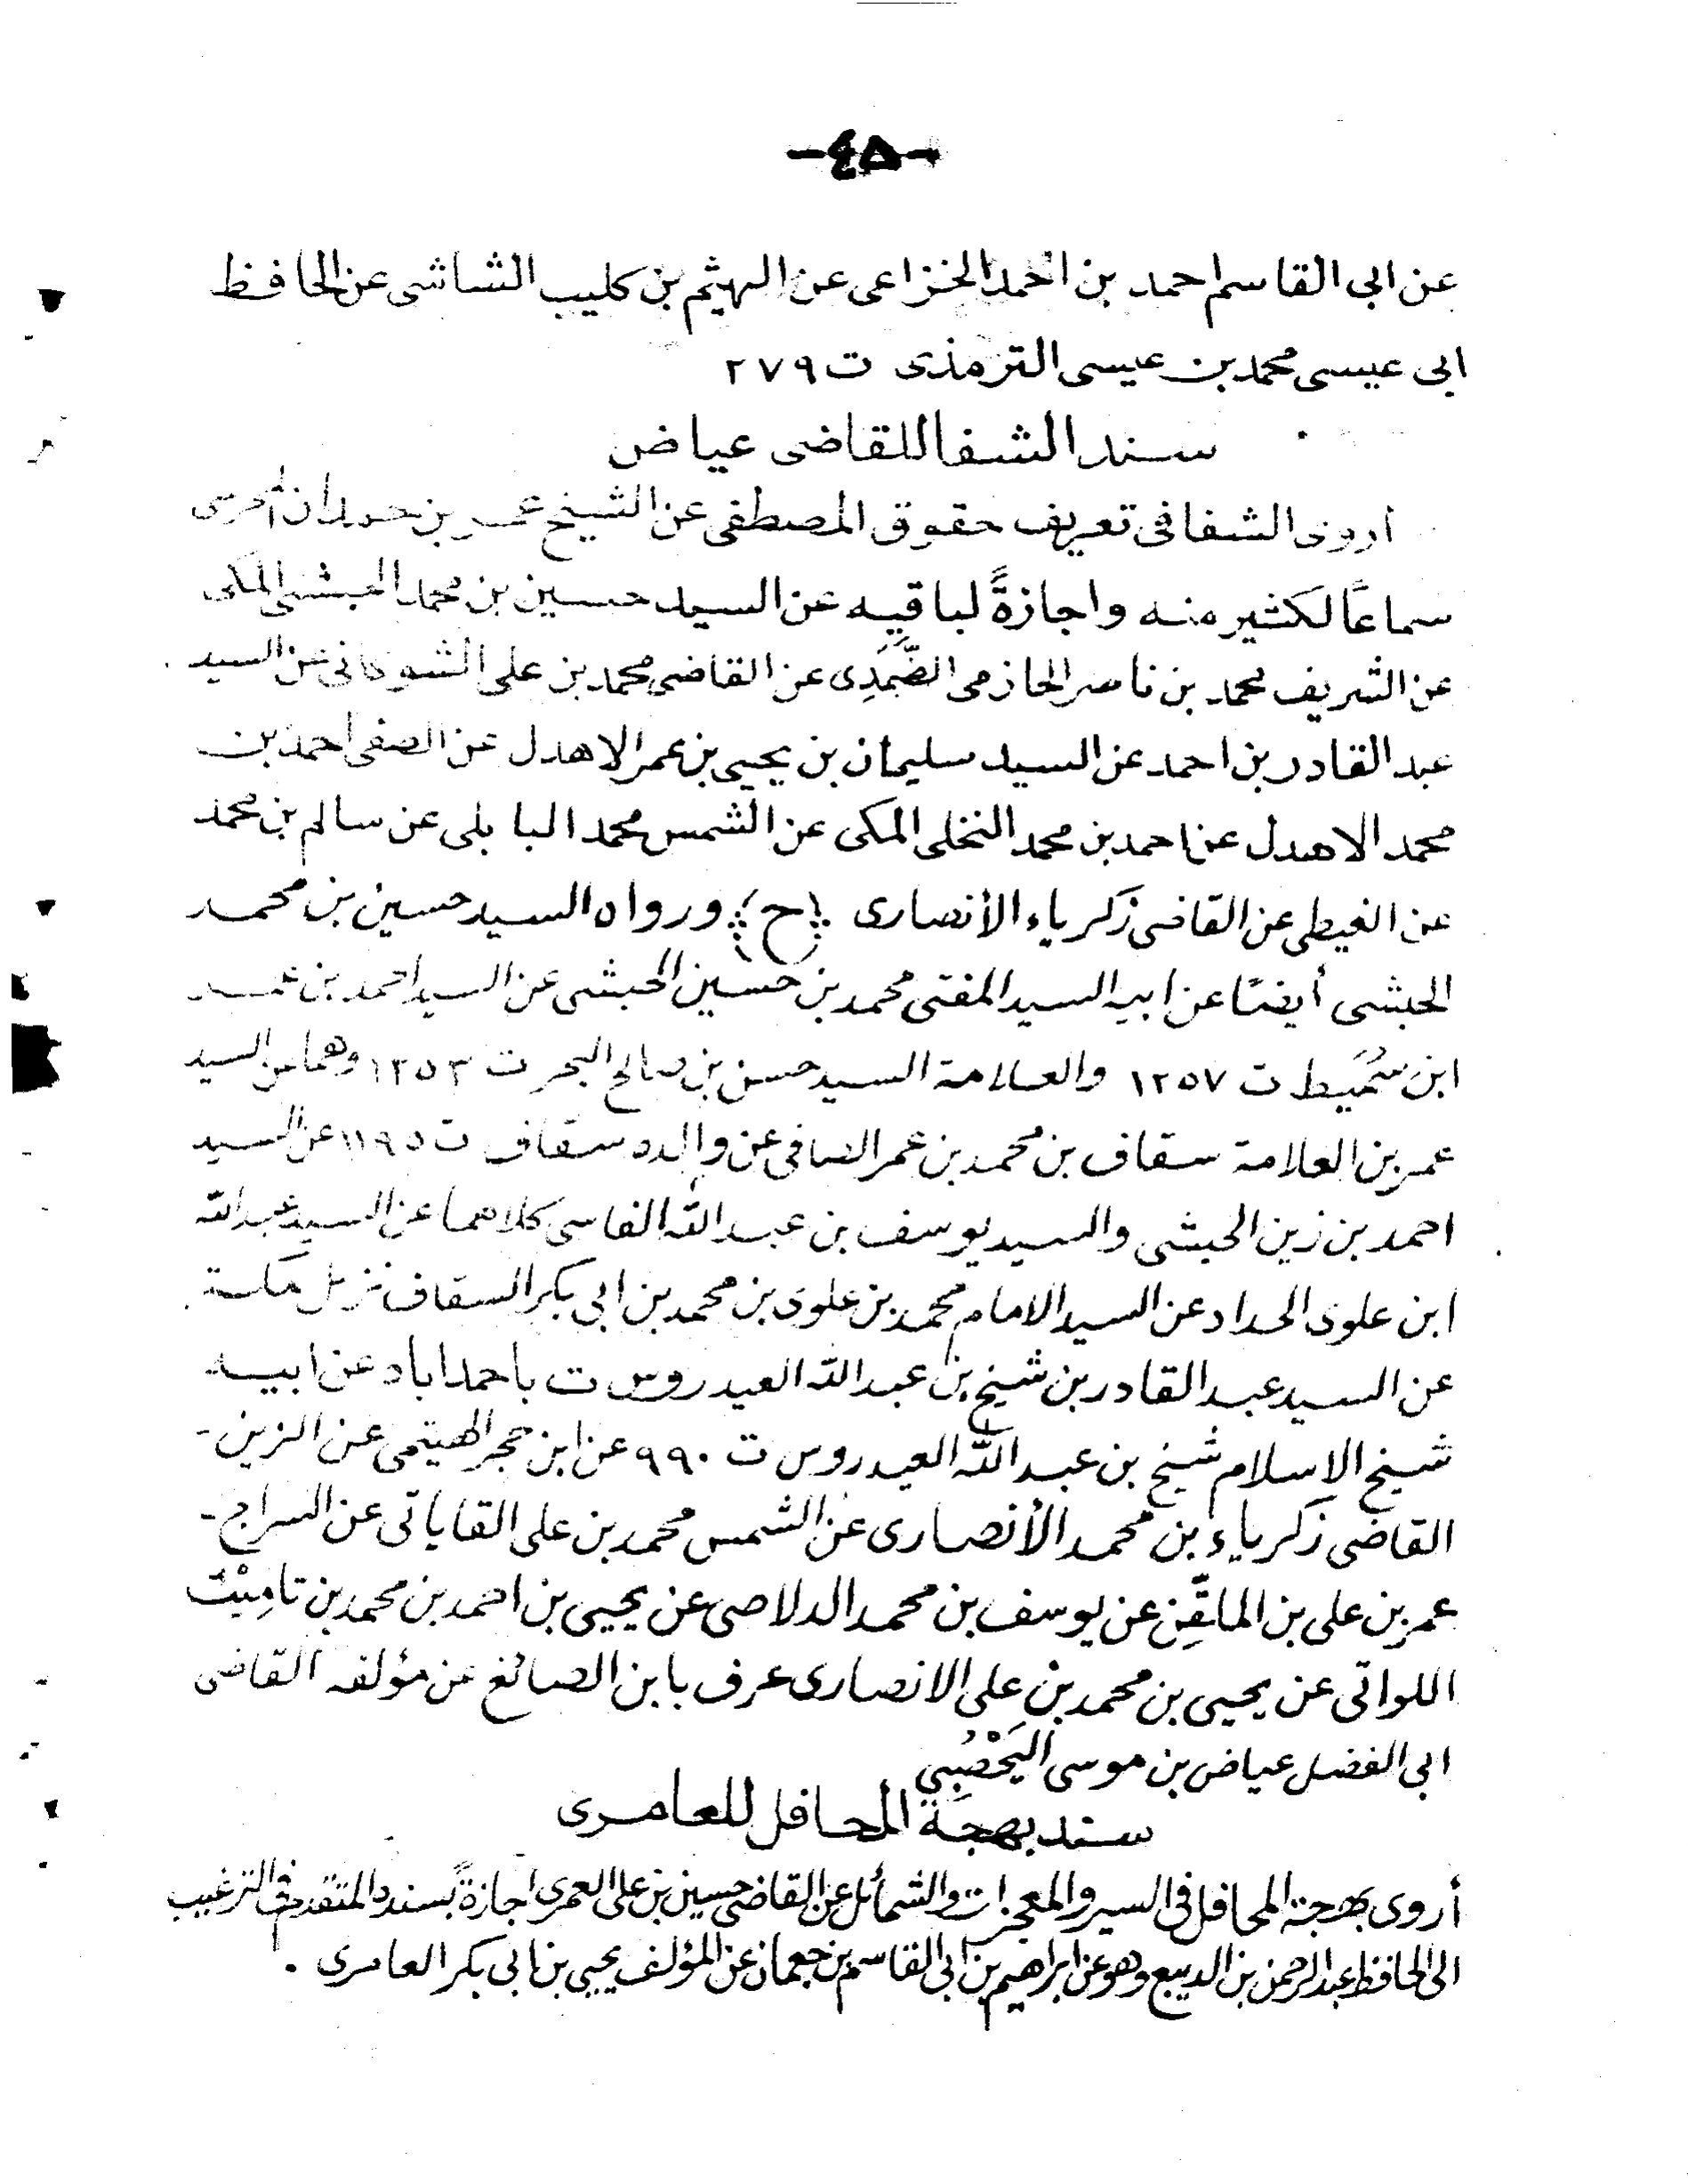 -٤٥-
عن ابى القاسم احمد بن احمد الخزاعى عن الهيثم بن كليب الشاشى عن الحافظ
ابى عيسى محمد بن عيسى الترمذى ت ٢٧٩
سند الشفا للقاضى عياض
أروى الشفا فى تعريف حقوق المصطفى عن الشيخ عمر بن حمدان المحرسى
سماعًا لكثير منه واجازةً لباقيه عن السيد حسين بن محمد الحبشى المكى
عن الشريف محمد بن ناصر الحازمى الضَّمَدِى عن القاضى محمد بن على الشوكانى عن السيد
عبد القادر بن احمد عن السيد سليمان بن يحيى بن عمر الاهدل عن الصفى احمد بن
محمد الاهدل عن احمد بن محمد النخلى المكى عن الشمس محمد البابلى عن سالم بن محمد
عن الغيطى عن القاضى زكرياء الأنصارى (ح) ورواه السيد حسين بن محمد
الحبشى أيضًا عن ابيه السيد المفتى محمد بن حسين الحبشى عن السيد احمد بن عمر
ابن سُمَيط ت ١٢٥٧ والعلامة السيد حسن بن صالح البحر ت ١٢٥٣ وهما عن السيد
عمر بن العلامة سقاف بن محمد بن عمر الصافى عن والده سقاف ت ١١٩٥ عن السيد
احمد بن زين الحبشى والسيد يوسف بن عبد الله الفاسى كلاهما عن السيد عبد الله
ابن علوى الحداد عن السيد الامام محمد بن علوى بن محمد بن ابى بكر السقاف نزيل مكة
عن السيد عبد القادر بن شيخ بن عبد الله العيدروس ت باحمداباد عن ابيه
شيخ الاسلام شيخ بن عبد الله العيدروس ت ٩٩٠ عن ابن حجر الهيتمى عن الزين -
القاضى زكرياء بن محمد الأنصارى عن الشمس محمد بن على القاياتى عن السراج -
عمر بن على بن الملقِّن عن يوسف بن محمد الدلاصى عن يحيى بن احمد بن محمد بن تامِتِيْت
اللواتى عن يحيى بن محمد بن على الانصارى عرف بابن الصائغ عن مؤلفه القاضى
ابى الفضل عياض بن موسى اليَحْصُبِي
سند بهجة المحافل للعامرى
أروى بهجة المحافل فى السير والمعجزات والشمائل عن القاضى حسين بن على العمرى اجازةً بسنده المتقدم فى الترغيب
الى الحافظ عبد الرحمن بن الديبع وهو عن ابراهيم بن ابى القاسم بن جعمان عن المؤلف يحيى بن ابى بكر العامرى .